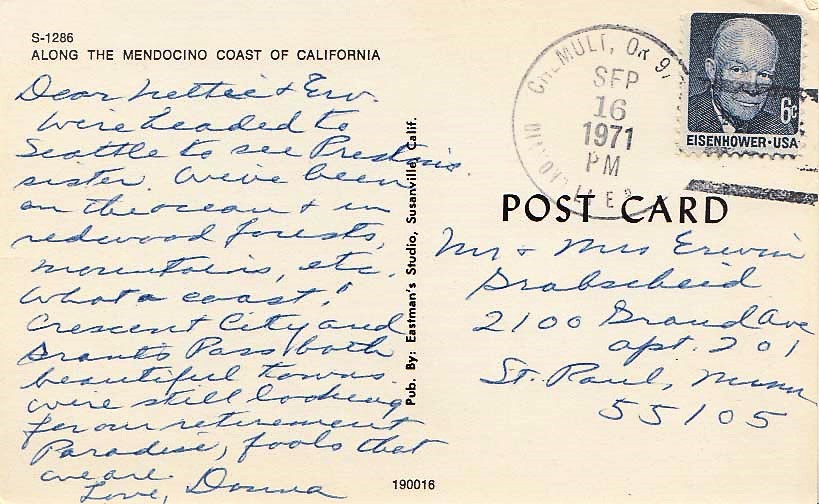 S-1286
ALONG THE MENDOCINO COAST OF CALIFORNIA
Dear Nettie & Erv.
We're headed to
Seattle to see Preston's
sister. We've been
on the ocean & in
redwood forests,
mountains, etc.
What a coast!
Crescent City and
Grants Pass both
beautiful towns.
We're still looking
for our retirement
Paradise, fools that
we are.
Love, Donna
Pub. By: Eastman's Studio, Susanville, Calif.
190016
CHEMULT, OR 97
SEP
16
1971
PM
6c
EISENHOWER·USA
POST CARD
Mr & Mrs Erwin
Grabscheid
2100 Grand Ave
apt. 201
St. Paul, Minn
55105